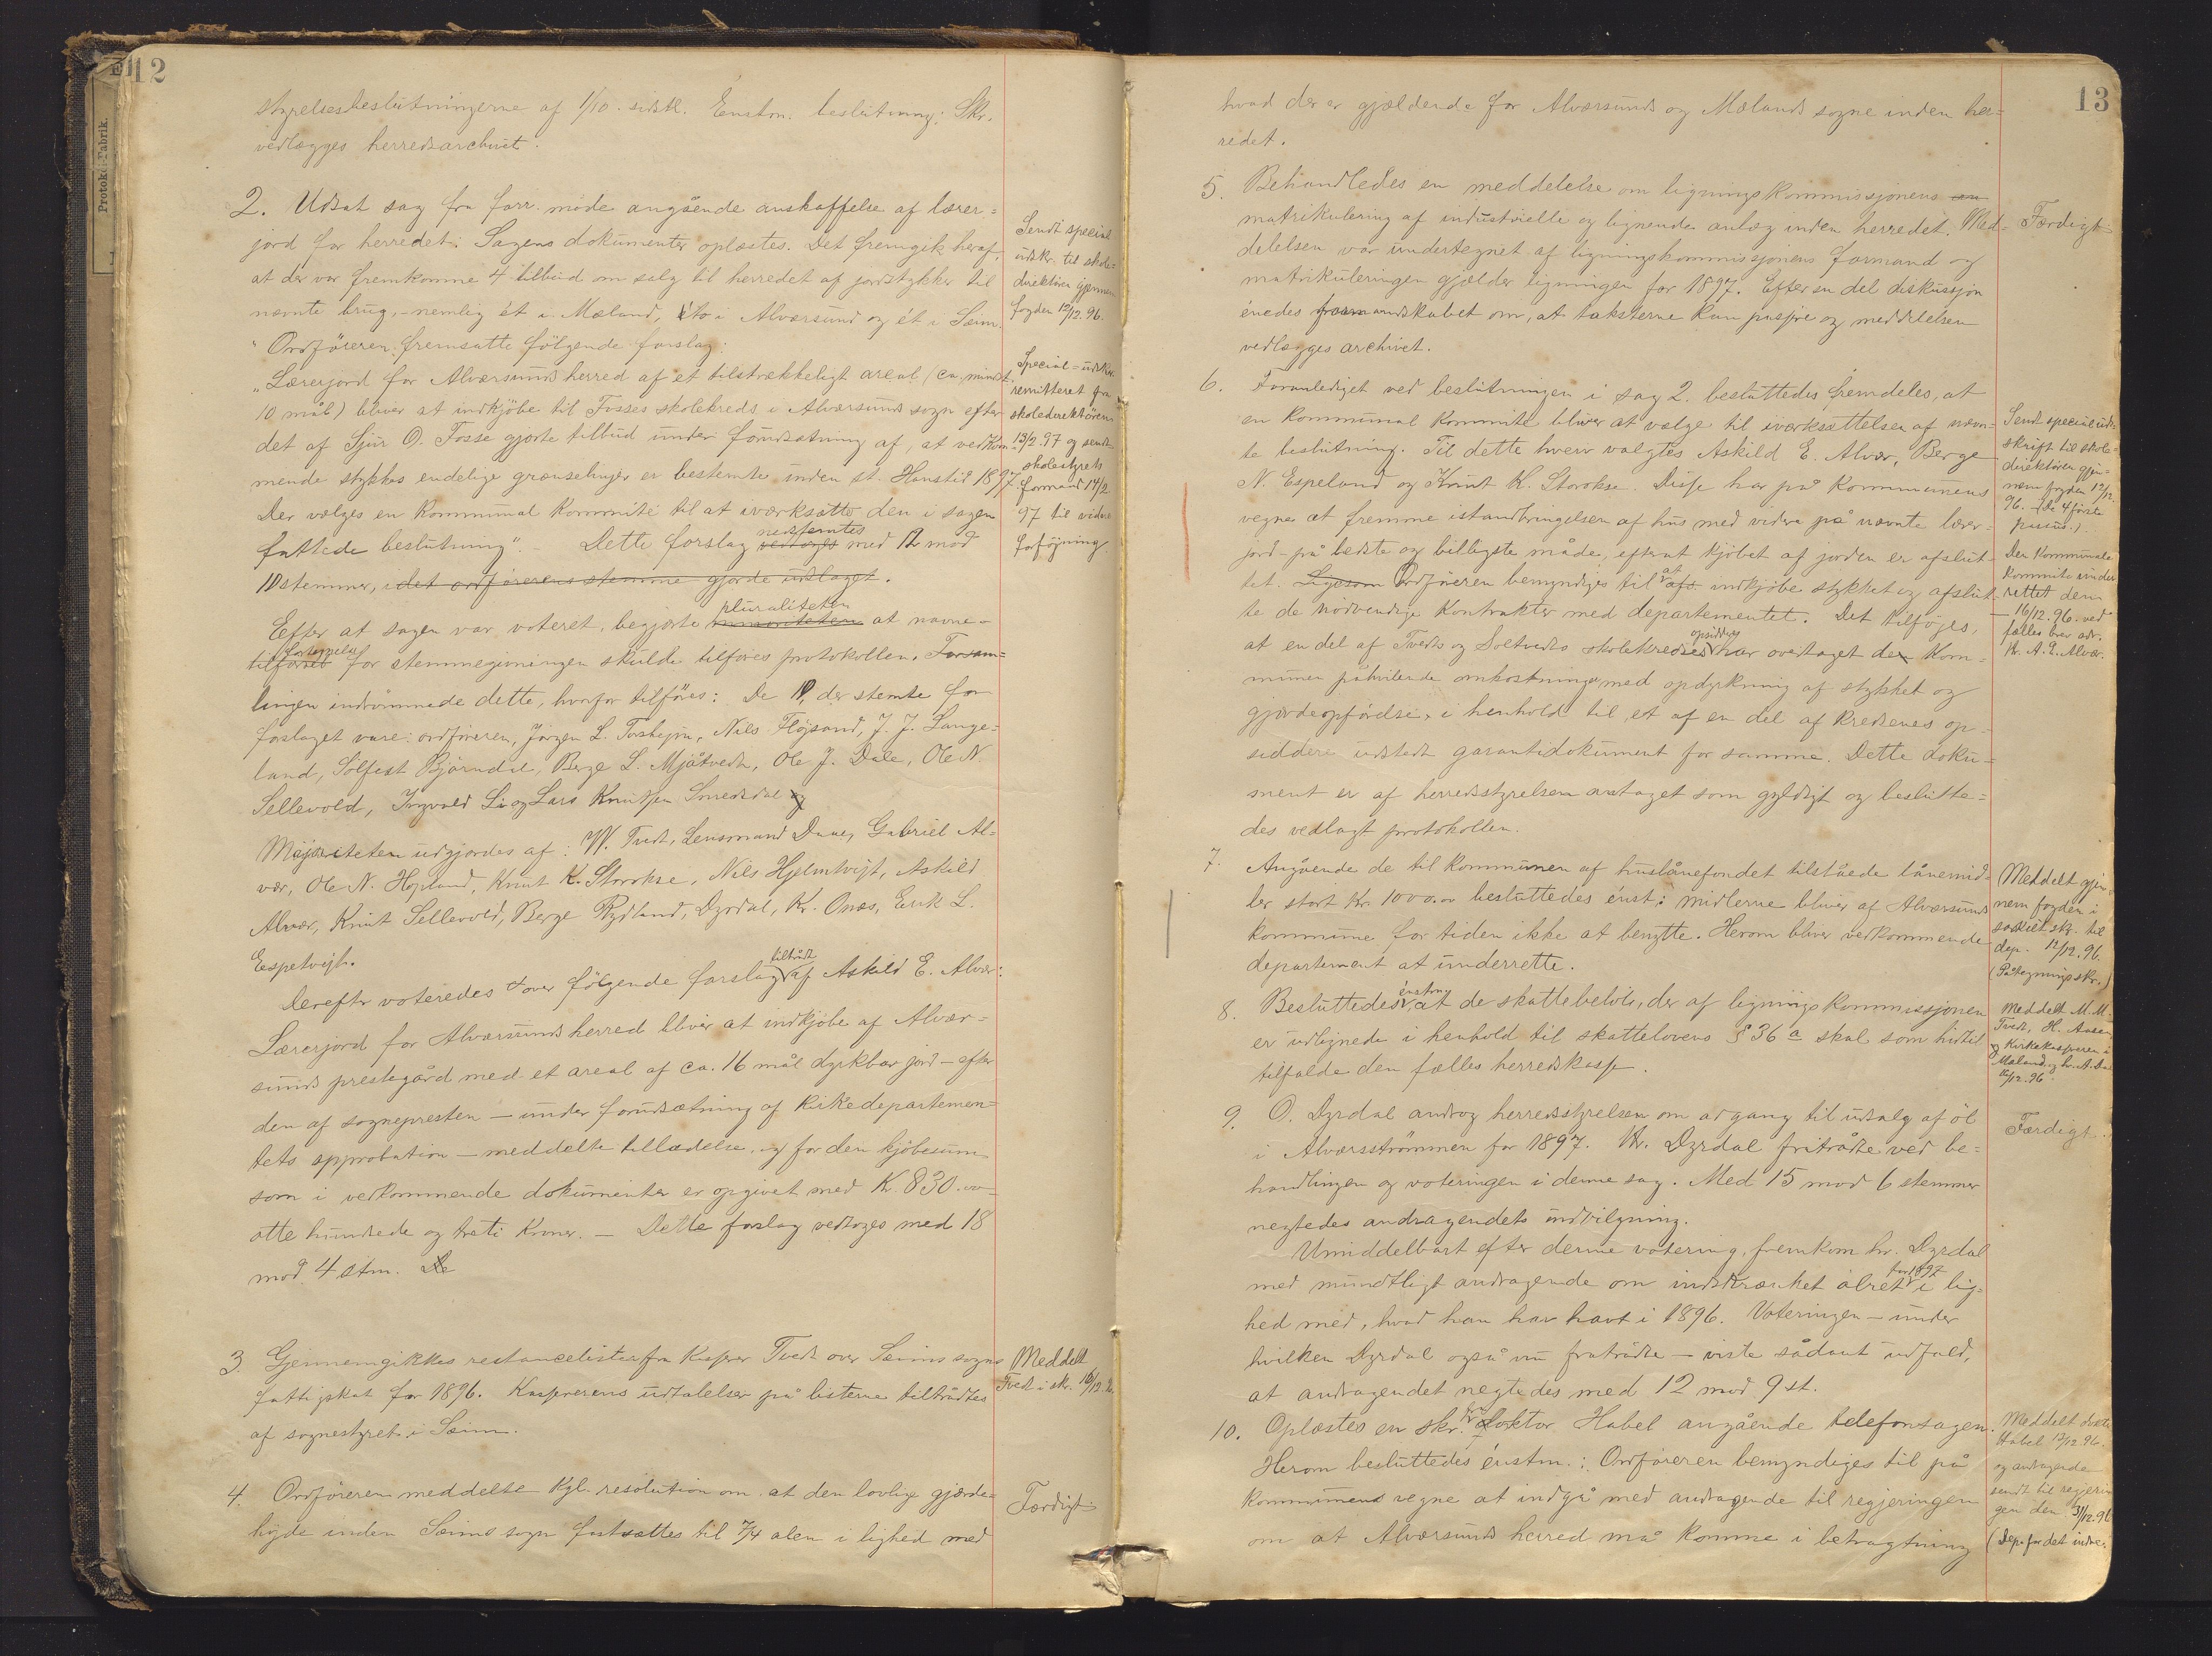 12
styrelsesbeslutningerne af 1/10. sidstl. Énstm. beslutning: Skr.
vedlægges herredsarchivet.
2. Udsat sag fra forr. møde angående anskaffelse af lærer=
jord for herredet: Sagens dokumenter oplæstes. Det fremgik heraf,
at der var fremkomne 4 tilbud om salg til herredet af jordstykker til
nævnte brug, - nemlig ét i Mæland, to i Alværsund og ét i Seim.
Ordføreren fremsatte følgende forslag:
"Lærerjord for Alværsunds herred af et tilstrækkeligt areal (ca. mindst
10 mål) bliver at indkjøbe til Fosses skolekreds i Alværsunds sogn efter
det af Sjur O. Fosse gjorte tilbud under forudsætning af, at vedkom=
mende stykkes endelige grænselinjer er bestemte inden st. Hanstid 1897
Der vælges en kommunal kommité til at iværksætte den i sagen
fattede beslutning". - Dette forslag vedtoges nedstemtes med 12 mod
10 stemmer, idet ordførerens stemme gjorde udslaget.
Efter at sagen var voteret, begjærte minoriteten pluraliteten at navne-
fortegnelse for stemmegivningen skulde tilføres protokollen. Forsam=
lingen indrømmede dette, hvorfor tilføres: De 10, der stemte for
forslaget vare: ordføreren, Jørgen L. Toskejen, Nils Fløjsand, J. J. Lange=
land, Sølfest Bjørndal, Berge L. Mjåtvedt, Ole J. Dale, Ole N.
Sellevold, Ingvald Li og Lars Knutsen Smredsdal og
Majoriteten udgjordes af: W. Tvedt, Lensmand Daae, Gabriel Al=
vær, Ole N. Hopland, Knut K. Storokse, Nils Hjelmtvejt, Askild
Alvær, Knut Sellevold, Berge Rydland, Dyrdal, Kr. Onæs, Erik L.
Eespetvejt.
Derefter voteredes over følgende forslag tiltrådt af Askild E. Alvær:
Lærerjord for Alværsunds herred bliver at indkjøbe af Alvær=
sunds prestegård med et areal af ca. 16 mål dyrkbar jord - efter
den af sognepresten - under forudsætning af Kirkedepartemen=
tets approbation - meddelte tilladelse, og for den kjøbesum
som i vedkommende dokumenter er opgivet med Kr. 830.00
otte hundrede og treti kroner. - Dette forslag vedtoges med 18
mod 4 stm. De
3. Gjennemgikkes restancelisten fra kasserer Tvedt over Seims sogns
fattigskat for 1896. Kassererens udtalelser på listerne tiltrådtes
af sognestyret i Seim.
4. Ordføreren meddelte kgl. resolution om at den lovlige gjærde=
høyde inden Seims sogn fastsættes til 7/4 alen i lighed med
Sendt special
udskr. til skole=
direktøren gjennem
fogden 12/12.96.
Special=udskr.
remitteret fra
skoledirektøren
13/2.97 og sendt
skolestyrets
formand 14/2
97 til videre
føføjning
Meddelt
Tvedt i skr. 16/12.96.
Færdigt
13
hvad der er gjældende for Alværsunds og Mælands sogne inden her=
redet.
5. Behandledes en meddelelse om ligningskommissjonens an
matrikulering af industrielle og lignende anlæg inden herredet. Med=
delelsen var undertegnet af ligningskommissjonens formand og
matrikuleringen gjælder ligningen for 1897. Efter en del diskussjon
énedes formandskabet om, at taksterne kan passere og meddelelsen
vedlægges archivet.
6. Foranlediget ved beslutningen i sag 2. besluttedes fremdeles, at
en kommunal kommité bliver at vælge til iværksættelsen af nævn=
te beslutning. Til dette hverv valgtes Askild E. Alvær, Berge
N. Espeland og Knut K. Storokse. Disse har på kommunens
vegne at fremme istandbringelsen af hus med videre på nævnte lærer=
jord på bedste og billigste måde, efterat kjøbet af jorden er afslut-
tet. Ligesom Ordføreren bemyndiges til at afs. indkjøbe stykket og afslut-
te de nødvendige kontrakter med departementet. Det tilføjes,
at en del af Tveits og Soltvedts skolekredses opsiddere har overtaget den kom=
munen påhvilende omkostninger med opdyrkning af stykket og
gjærdeopførelse, i henhold til et af en del af kredsenes op-
siddere udstedt garantidokument for samme. Dette doku=
ment er af herredsstyrelsen antaget som gyldigt og beslutte=
des vedlagt protokollen.
7. Angående de til kommunen af huslånefondet tilståede lånemid=
ler stort kr. 1000.00 besluttedes énst: midlerne bliver af Alværsunds
kommune for tiden ikke at benytte. Herom bliver vedkommende
departement at underrette.
8. Besluttedes énstemmig at de skattebeløb, der af ligningskommissjonen
er udlignede i henhold til skattelovens § 36 a skal som hidtil
tilfalde den fælles herredskasse.
9. O. Dyrdal androg herredsstyrelsen om adgang til udsalg af øl
i Alværsstrømmen for 1897. Hr. Dyrdal fratrådte ved be=
handlingen og voteringen i denne sag. Med 15 mod 6 stemmer
negtedes andragendets indvilgning.
Umiddelbart efter denne votering, fremkom hr. Dyrdal
med mundtligt andragende om indskrænket ølret for 1897 i lig=
hed med, hvad han har havt i 1896. Voteringen - under
hvilken Dyrdal også nu fratrådte - viste sådant udfald,
at andragendet negtedes med 12 mod 9 st.
10. Oplæstes en skr. fra doktor Habel angående telefonsagen.
Herom besluttedes énstm.: Ordføreren bemyndiges til på
kommunens vegne at indgå med andragende til regjeringen
om at Alværsunds herred må komme i betragtning
Færdigt
Sendt special ud=
skrift til skole=
direktøren gjen=
nem fogden 12/12.
96. (De 4 første
passus.)
Den kommunale
kommité under
rettet den
16/12.96. ved
fælles brev adr.
hr. A. E. Alvær.
Meddelt gjen=
nem fogden i
særskilt skr. til
dep. 12/12.96.
(Påtegningsskr.)
Meddelt M. M.
Tvedt, H. Aase
& Kirkekassereren i
Mæland og hr. A. Daae
16/12.96.
Færdigt.
Meddelt doktor
Habel 12/12.96.
og andragende
sendt til regjerin
gen den 31/12.96
(Dep. for det indre.
Protokol-Fabrik.